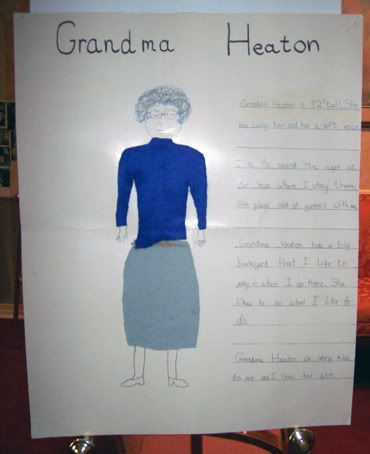 Grandma Heaton
Grandma Heaton is 5'2" tall. She
has curly hair and has a soft voice
I like to spend the night at
when I stay there
she plays alot of games with me
Grandma Heaton has a big
backyard that I like to
play in when I go there. She
likes to do what I like to
do
Grandma Heaton is very nice
to me and I love her alot